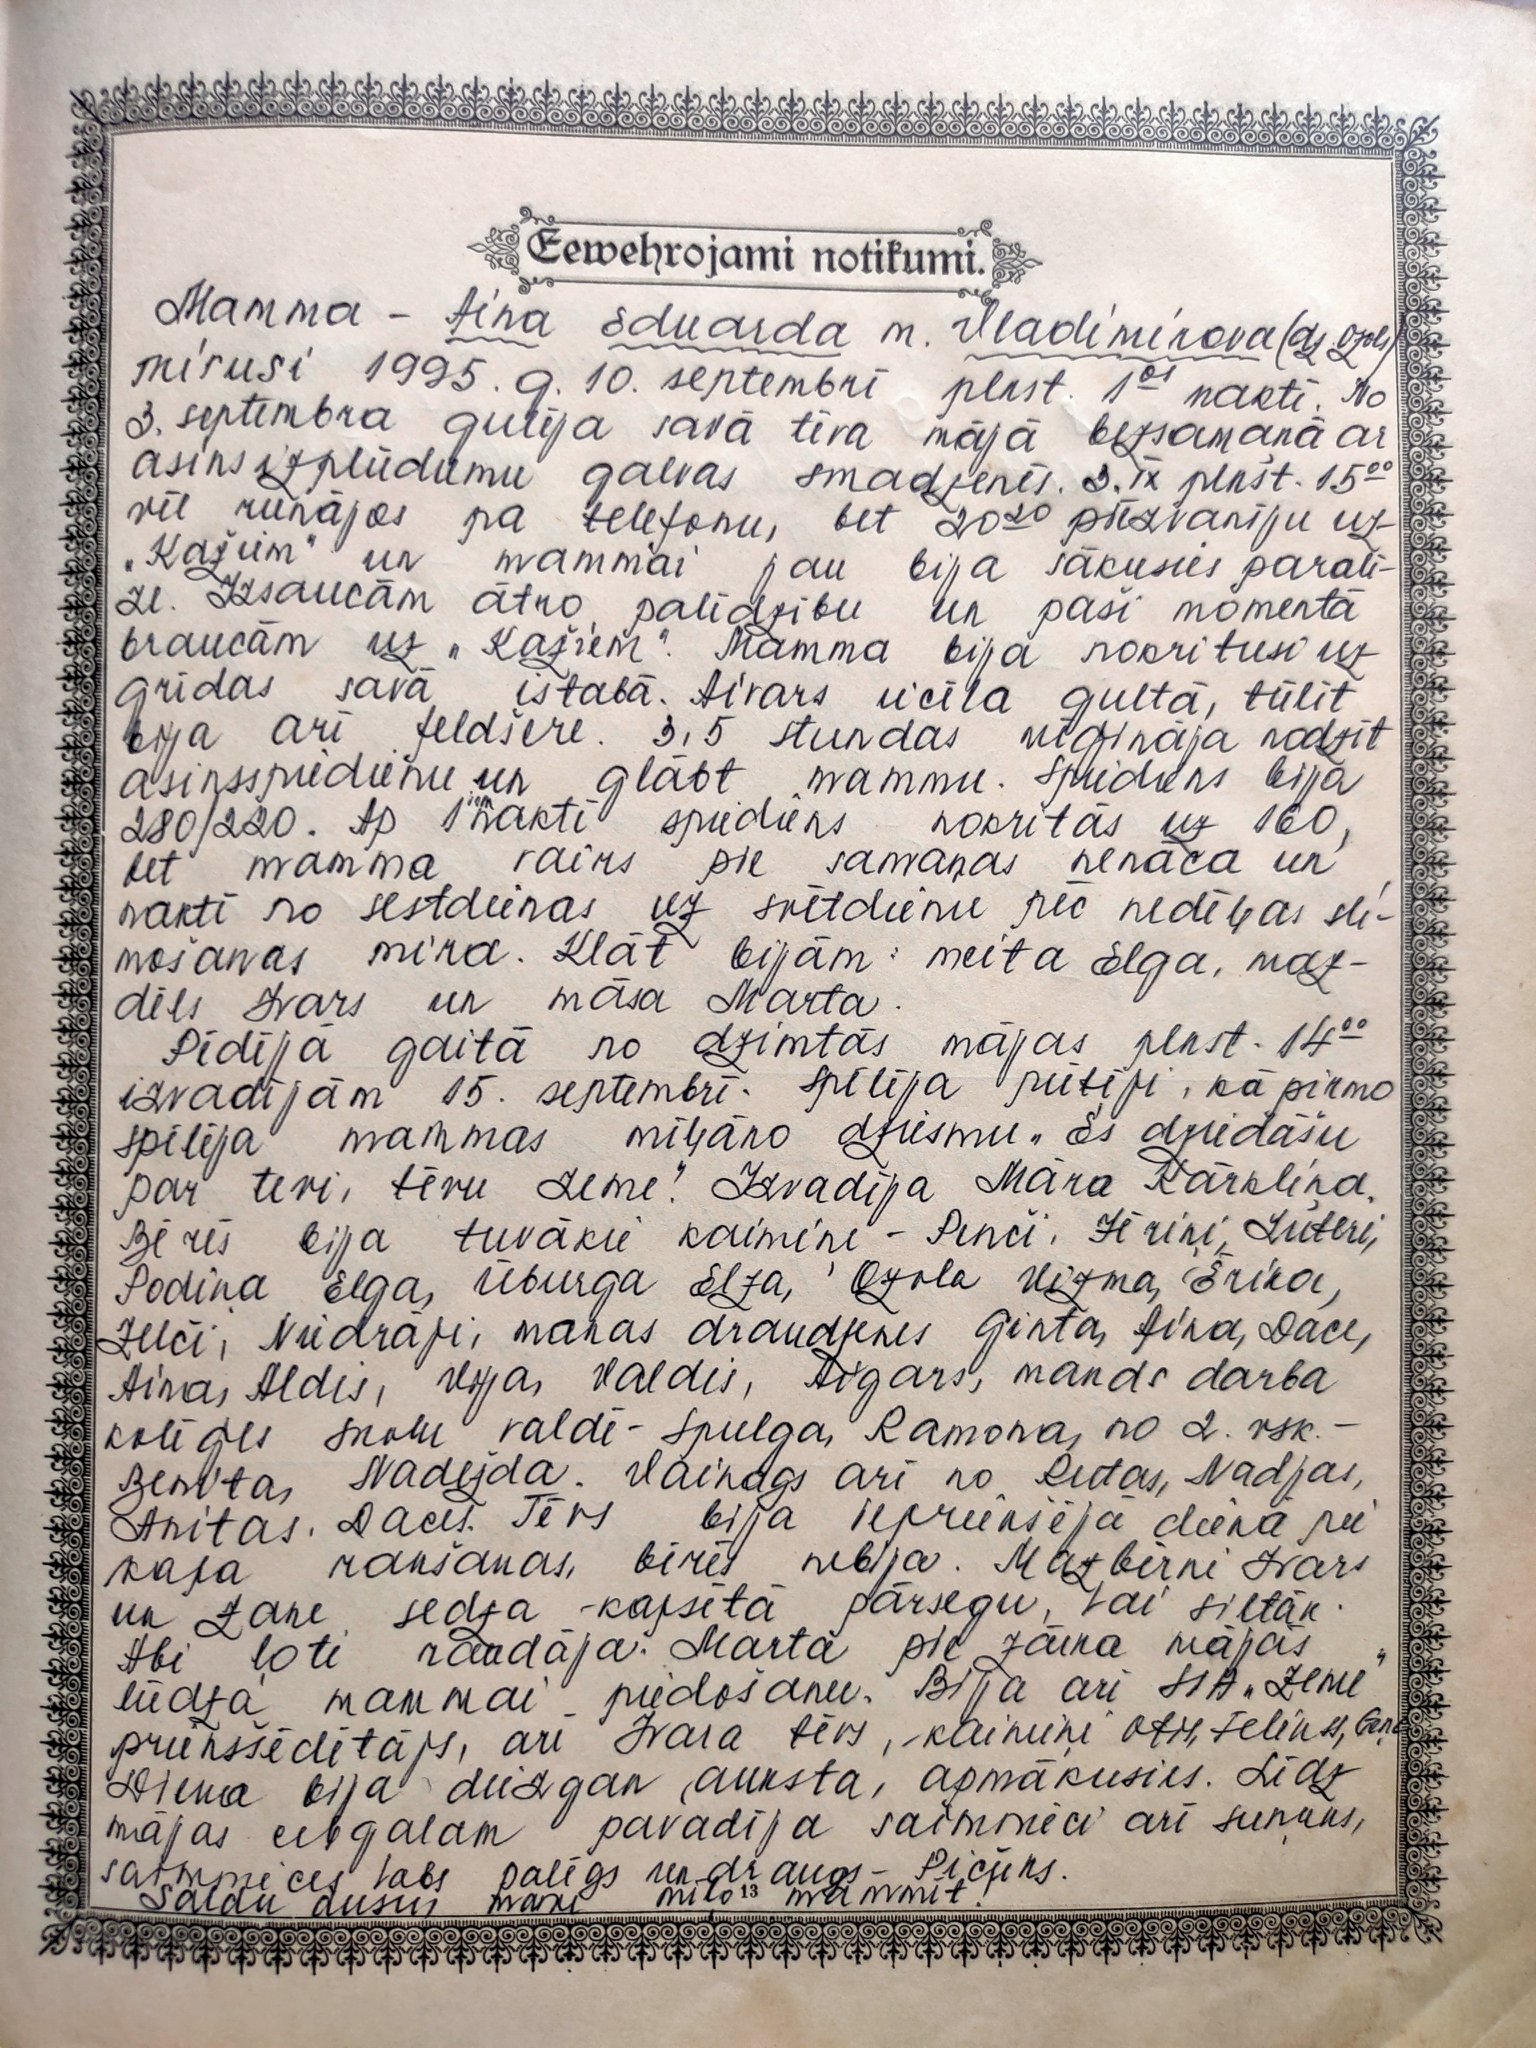 Eewehrojami notikumi.
Mamma - Aina Eduarda m. Vladimirova (dz. Ozols)
mirusi 1995. g. 10. septembrī plkst. 1⁰¹ naktī. No
3. septembra gulēja savā tēva mājā bezsamaņā ar
asinsizplūdumu galvas smadzenēs. 3. IX plkst. 15⁰⁰
vēl runājos pa telefonu, bet 20²⁰ piezvanīju uz
"Kažiem" un mammai jau bija sākusies paralī-
ze. Izsaucām ātro palīdzību un paši momentā
braucām uz "Kažiem". Mamma bija nokritusi uz
grīdas savā istabā. Aivars iecēla gultā, tūlīt
bija arī feldšere. 3,5 stundas mēģināja nodzīt
asinsspiedienu un glābt mammu. Spiediens bija
280/220. Ap 1ᶦᵉᵐ naktī spiediens nokritās uz 160,
bet mamma vairs pie samaņas nenāca un
naktī no sestdienas uz svētdienu pēc nedēļas sli-
mošanas mira. Klāt bijām: meita Elga, maz-
dēls Ivars un māsa Marta.
Pēdējā gaitā no dzimtās mājas plkst. 14⁰⁰
izvadījām 15. septembrī. Spēlēja pūtēji, kā pirmo
spēlēja mammas mīļāko dziesmu "Es dziedāšu
par tevi, tēvu zeme". Izvadīja Māra Kārkliņa.
Bērēs bija tuvākie kaimiņi - Penči, Zēriņi, Lūteri,
Podiņa Elga, Ūburga Elza, Ozola Vizma, Ērika,
Zelči, Niedrāji, manas draudzenes Ginta, Aina, Dace,
Aina, Aldis, Vija, Valdis, Aigars, manas darba
kolēģes skolu valdē - Spulga, Ramona, no 2. vsk. -
Benita, Nadežda. Vainags arī no Rutas, Nadjas,
Anitas, Daces. Tēvs bija iepriekšējā dienā pie
kapa rakšanas, bērēs nebija. Mazbērni Ivars
un Zane sedza kapsētā pārsegu, lai siltāk.
Abi ļoti raudāja. Marta pie zārka mājās
lūdza mammai piedošanu. Bija arī SIA "Zeme"
priekšsēdētājs, arī Ivara tēvs, kaimiņi
Diena bija diezgan auksta, apmākusies. Līdz
mājas ceļgalam pavadīja saimnieci arī sunuks,
saimnieces labs palīgs un draugs - Picjuks.
Saldu dusu, mana mīļo mammīt!
13